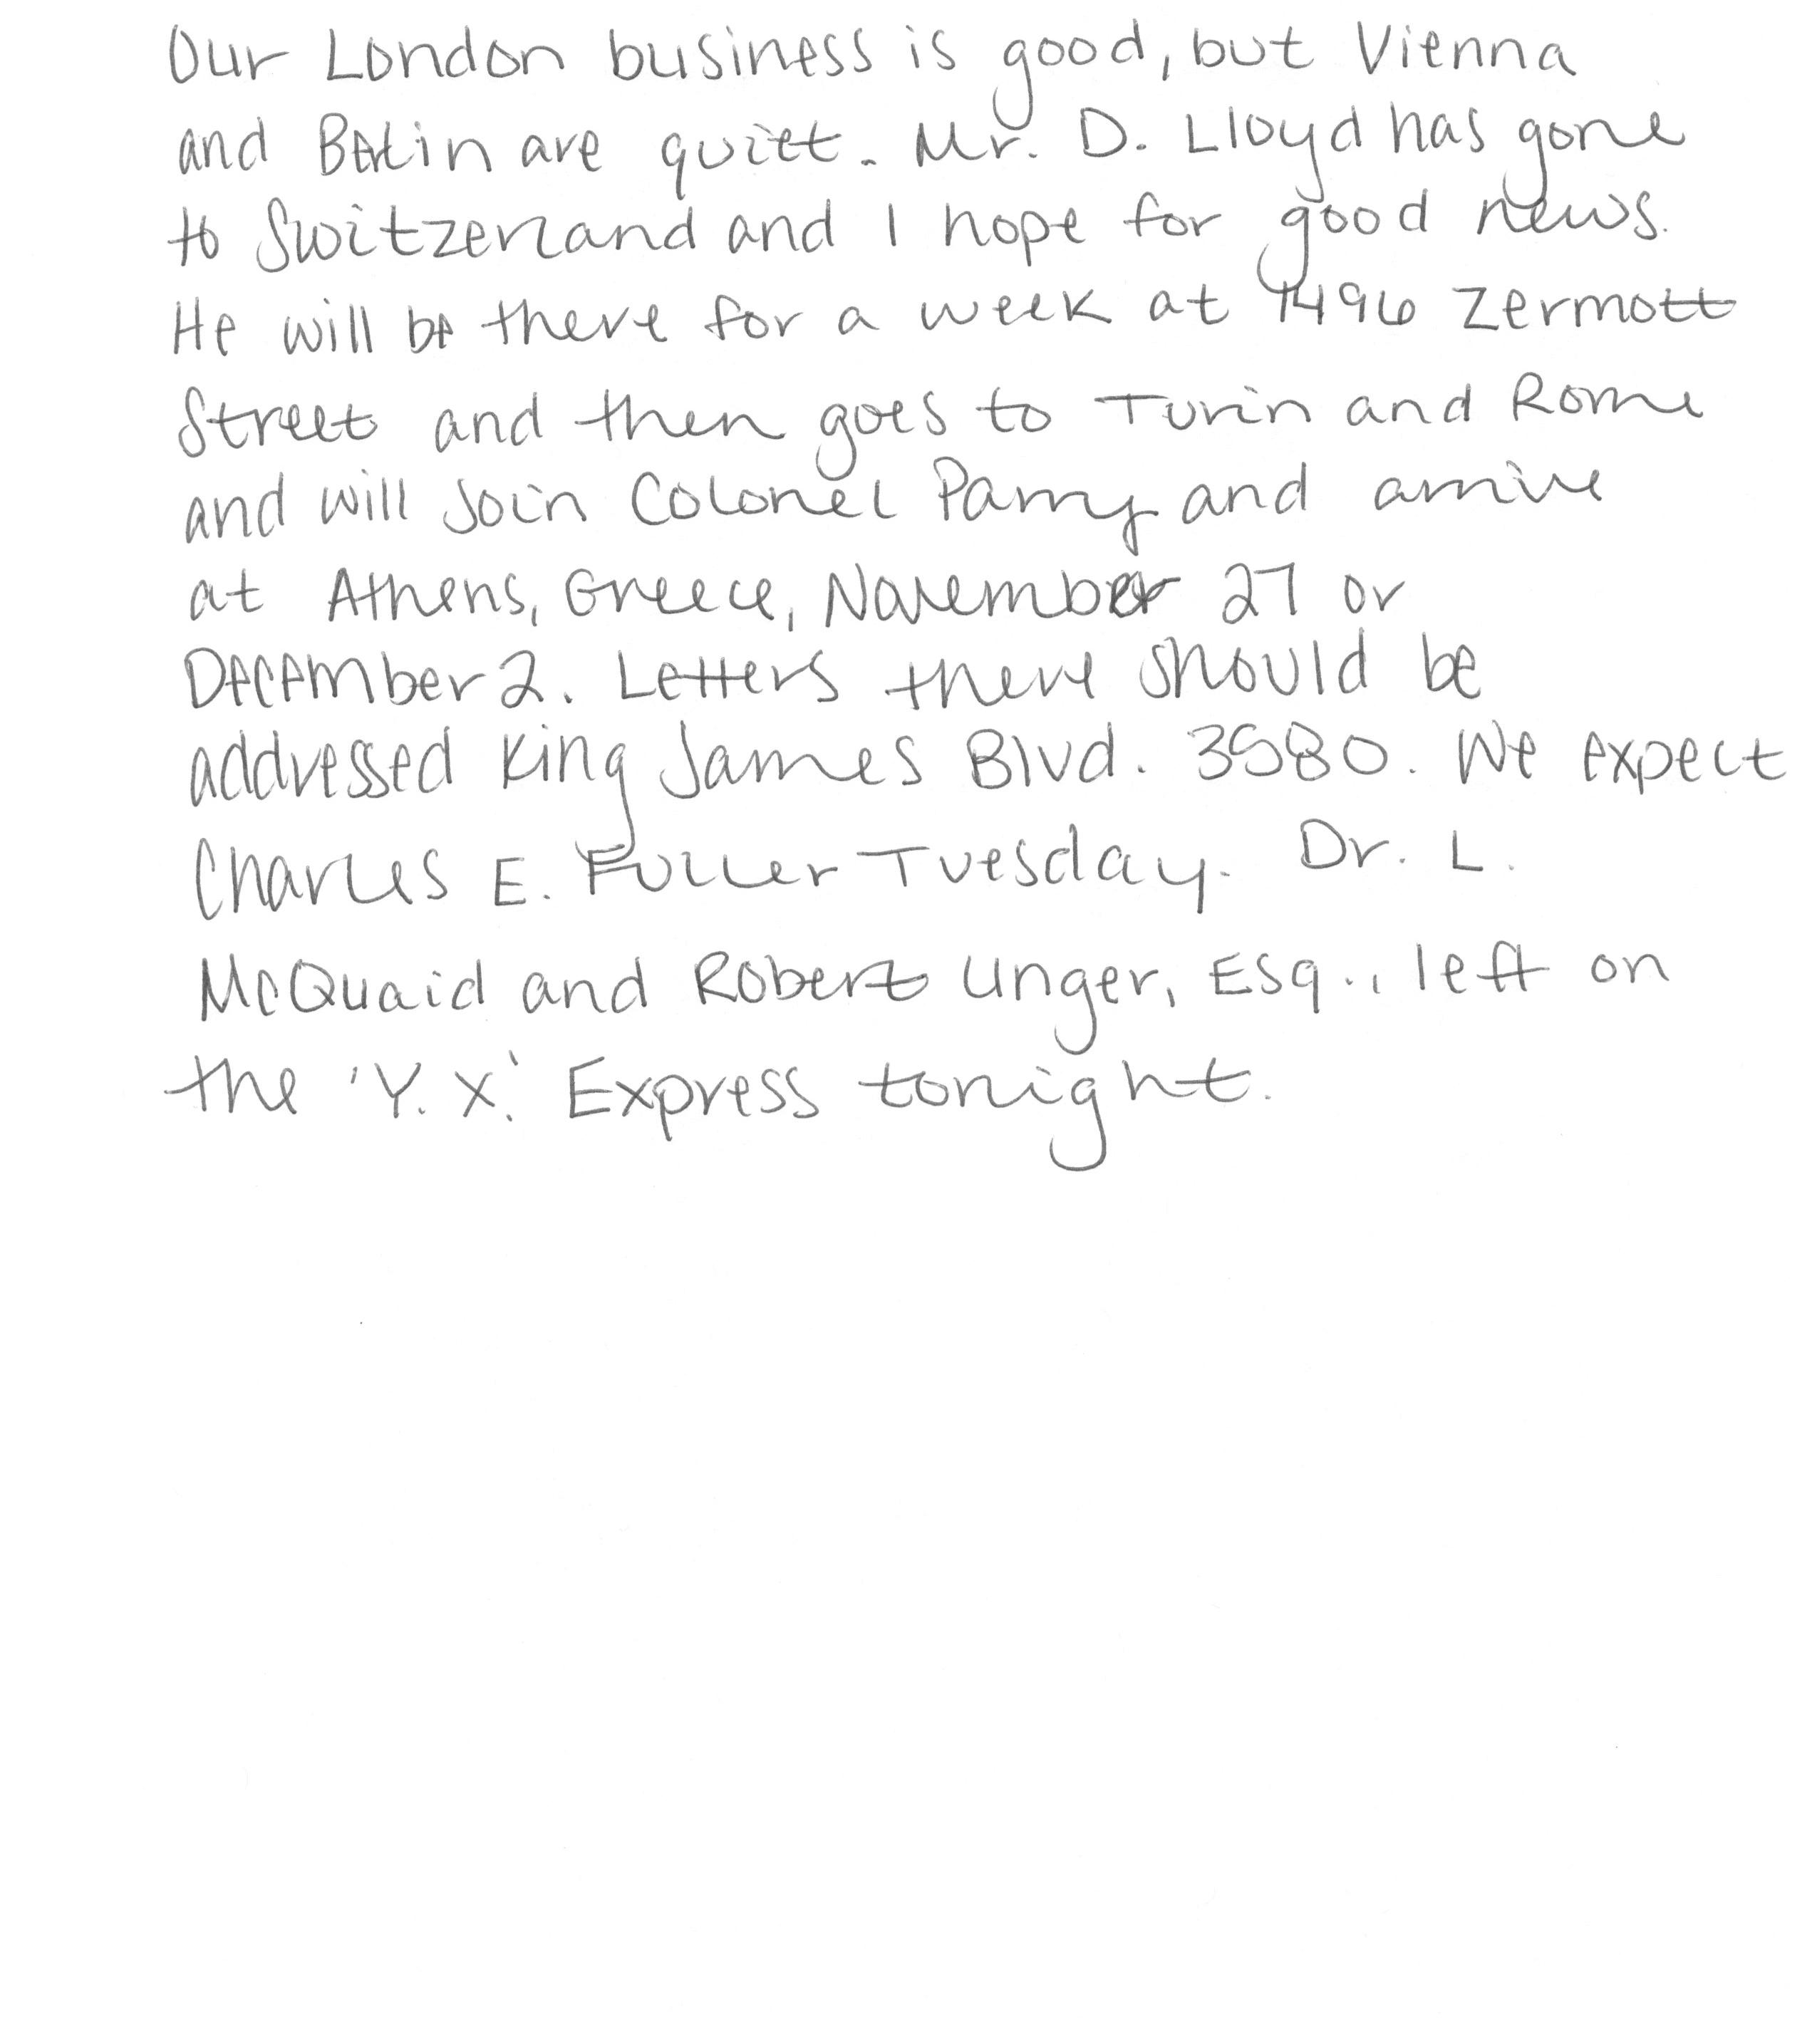 Our London business is good, but Vienna
and Berlin are quiet. Mr. D. Lloyd has gone
to Switzerland and I hope for good news.
He will be there for a week at 1496 Zermott
Street and then goes to Turin and Rome
and will join Colonel Parry and arrive
at Athens, Greece, November 27 or
December 2. Letters there should be
addressed King James Blvd. 3580. We expect
Charles E. Fuller Tuesday. Dr. L.
McQuaid and Robert Unger, Esq., left on
the 'Y. X.' Express tonight.